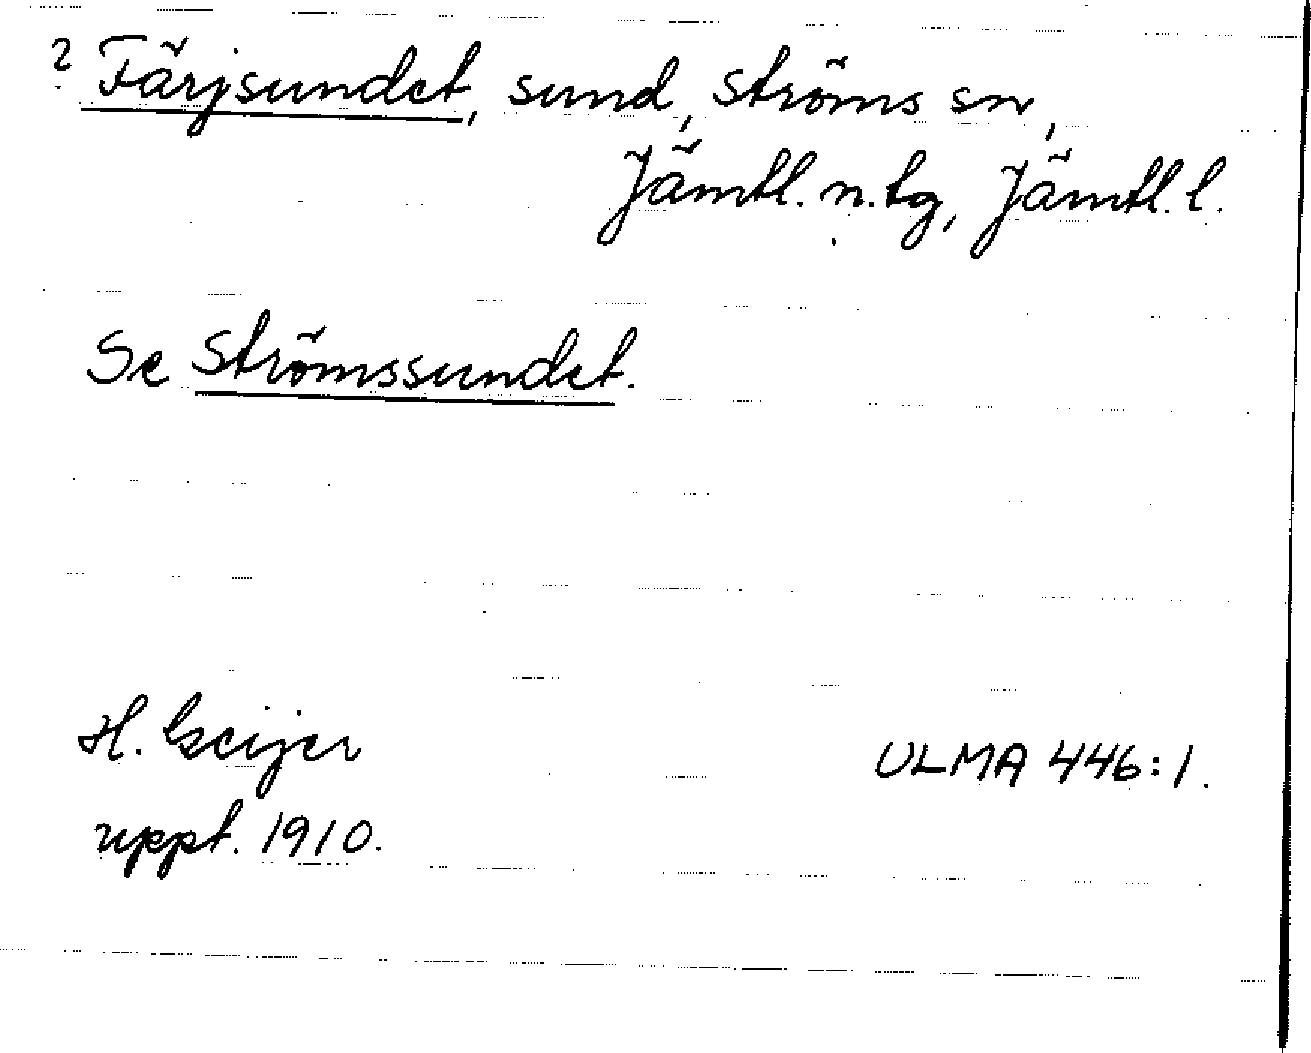 ? Färjsundet, sund, Ströms sn,
Jämtl. n. tg, Jämtl. l.
Se Strömssundet.
H. Geijer
ULMA 446:1.
uppt. 1910.